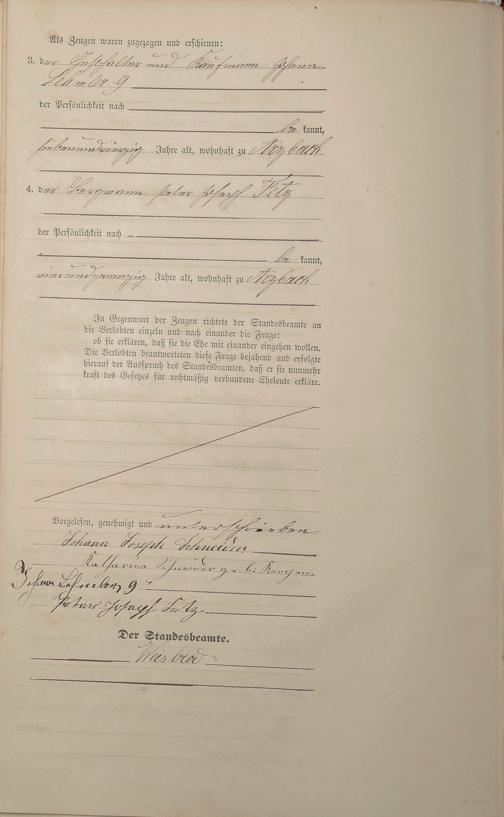 Als Zeugen waren zugezogen und erschienen:
3. der Gasthalter und Kaufmann Johann
9
der Persönlichkeit nach
be kannt,
siebenundvierzig Jahre alt, wohnhaft zu Arzbach
4. der Bergmann Peter Joseph Fetz
der Persönlichkeit nach
be kannt,
vierundzwanzig Jahre alt, wohnhaft zu Arzbach
In Gegenwart der Zeugen richtete der Standesbeamte an
die Verlobten einzeln und nach einander die Frage:
ob sie erklären, daß sie die Ehe mit einander eingehen wollen.
Die Verlobten beantworteten diese Frage bejahend und erfolgte
hierauf der Ausspruch des Standesbeamten, daß er sie nunmehr
kraft des Gesetzes für rechtmäßig verbundene Eheleute erkläre.
Vorgelesen, genehmigt und unterschrieben
Johann Joseph Schneider
Katharina Schneider geb.
Johann 9
Peter Joseph Fetz.
Der Standesbeamte.
Weisbrod